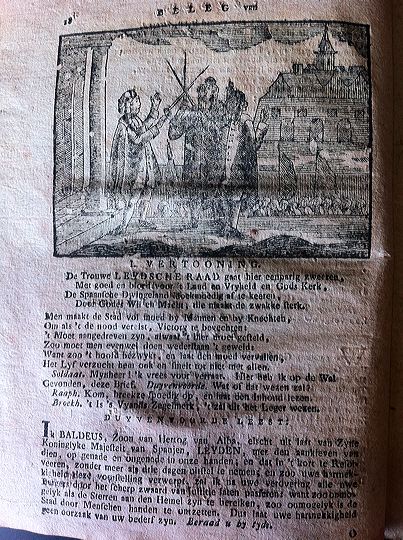 18 BELEG van
I. VERTOONING.
De Trouwe LEYDSCHE RAAD gaat hier eenparig zweeren,
Met goed en bloed voor 't Land en Vryheid en Gods Kerk,
De Spaansche Dwingeland af te keeren,
Door Godes Wil en Macht, die maakt de zwakke sterk.
Men maakt de Stad vol moed by Mannen en by Knechten,
Om als 't de nood vereist, Victory te bevechten;
't Moet aangedreven zyn, alwaar 't
Zoo moet men evenwel doen wederstaan 't geweld:
Want zoo 't hoofd bezwykt, en laat den moed vervallen,
Het Lyf verzucht hem ook en
Soldaat. Mynheer! 'k vrees hier verraat. Hier heb ik op de Wal
Gevonden, deez Brief. Duyvenvoorde. Wat of dat wezen zal?
Raaph. Kom, breekze spoedig op, en laat den inhoud lezen.
Broekh. 't is 's Vyands Zegelmerk, 't zal uit het Leger wezen.
DUYVENVOORDE LEEST:
IK BALDEUS, Zoon van Hertog van Alba, eischt uit last van Zyne
Koninglyke Majesteit van Spanjen, LEYDEN, met den aankleven van
dien, op genade en ongenade in onze handen; en dat in 't kort te
veeren, zonder meer als drie dagen uitstel te nemen, en zoo
deze voorstelling verwerpt, zal ik na uwe verovering alle uwe
Burgers door het scherp zwaard van laten passeren: want zoo onmo-
gelyk als de Sterren aan den Hemel zyn te bereiken, zoo onmogelyk is de
Stad door Menschen handen te ontzetten. Dus laat uwe hartnekkigheid
geen oorzaak van uw bederf zyn. Beraad u by tyds.
O